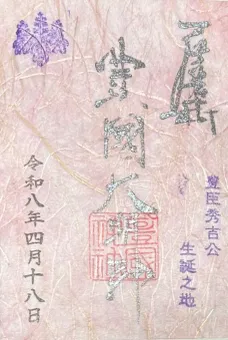 奉拝
豊臣秀吉公
生誕之地
豊國大明神
令和八年四月十八日